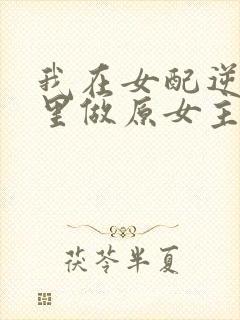 我在女配逆
里做原女主
茯苓半夏